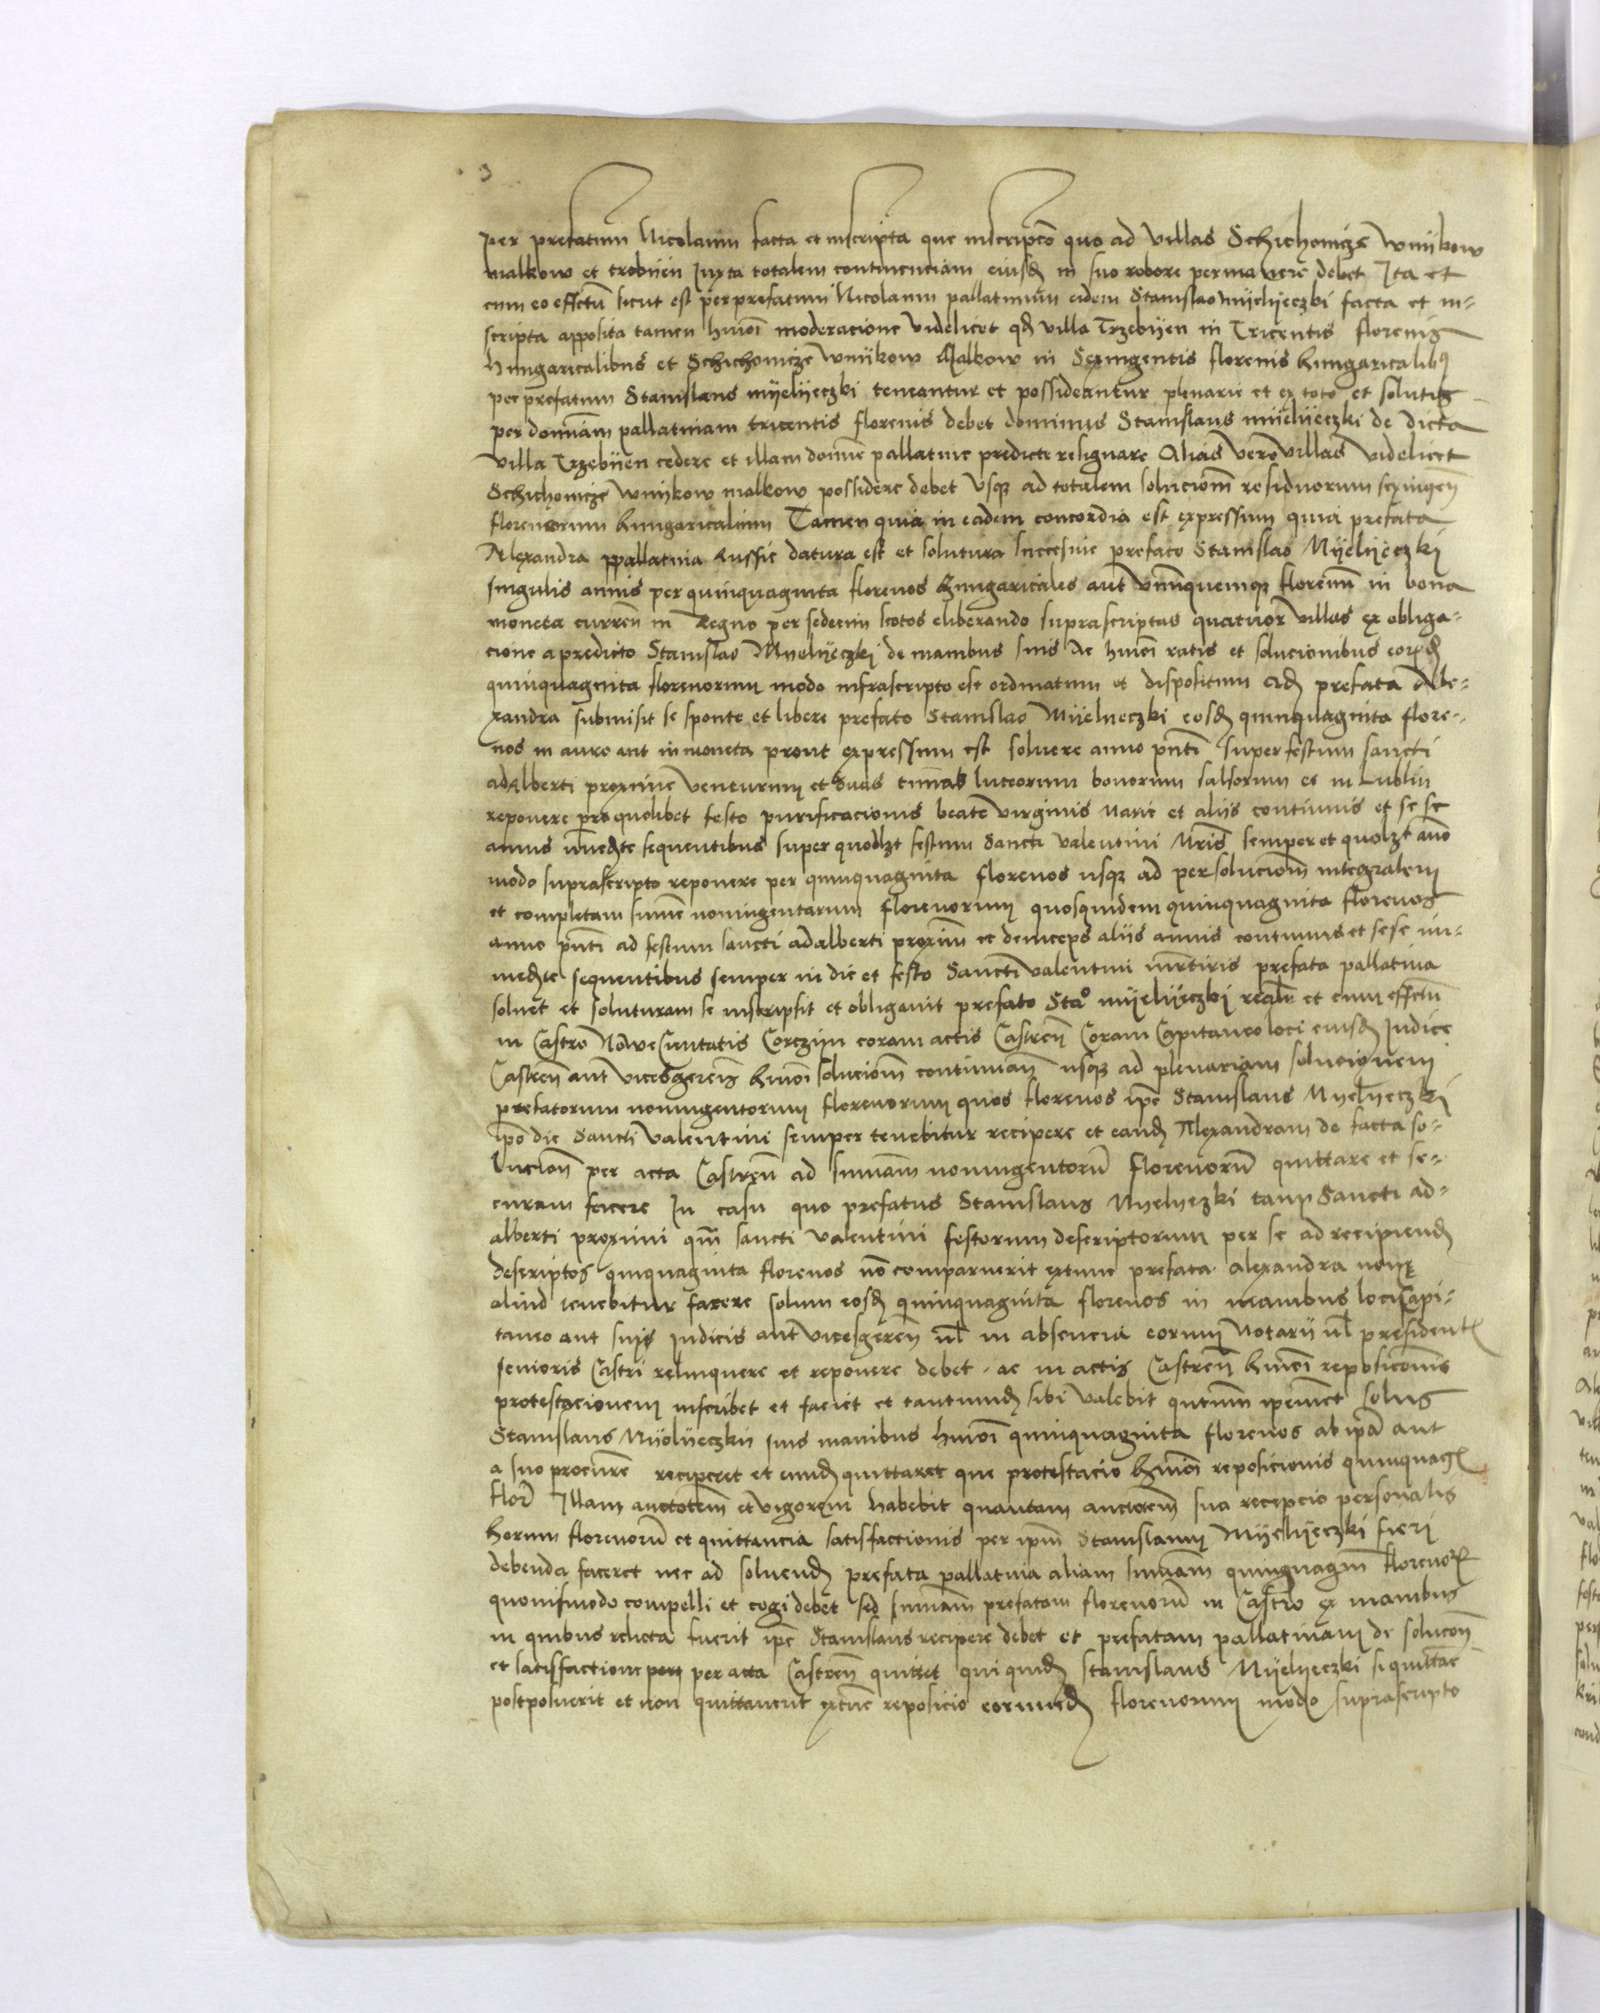 3
per prefatum Nicolaum facta et inscripta que inscripcō quo ad villas Schichowicze Wnijkow
malkow et trzebijen Juxta totalem continenciam eiusd in suo robore permanere debet Ita et
cum eo effctū sicut est per prefatum Nicolaum pallatinum eidem Stanislao Mijelijeczki facta et in-
scripta apposita tamen hmōi moderacione videlicet qd villa Trzebijen in Tricentis florenis
hungaricalibus et Schichowicze Wnijkow Malkow in Sexingentis florenis hungaricalib9
per prefatum Stanislaus mijelijeczki teneantur et possideantur plenarie et ex toto et solutis
per domām pallatinam tricentis florenis debet dominus Stanislaus mijelijeczki de dicta
villa Trzebijen cedere et illam domīe pallatine predicte resignare Alias vero villas videlicet
Schichowicze Wnijkow malkow possidere debet vsqz ad totalem solucionē residuorum sexingen
florenorum hungaricalium Tamen quia in eadem concordia est expressum quia prefata
Alexandra pallatina Russie datura est et solutura succesive prefato Stanislao Mijelijeczki
singulis annis per quinquaginta florenos hungaricales aut vnūquemqz florenū in bona
moneta currēn in Regno per sedecim scotos eliberando suprascriptas quatuor villas ex obliga-
cione a predicto Stanislao Mijelijeczki de manibus suis Ac hmōi ratis et solucionibus eorūd
quinquaginta florenorum modo infrascripto est ordinatum et dispositum Ead prefata Ale-
xandra submisit se sponte et libere prefato Stanislao Mijelijeczki eosd quinquaginta flore-
nos in auro aut in moneta prout expressum est soluere anno pntī super festum sancti
adalberti proxime venturum et duas tunnas luceorum bonorum salsorum et in Lublin
reponere pro quolibet festo purificacionis beate virginis marie et aliis continuis et se se
annis imediate sequentibus super quodlzt festum Sancti valentini Mrīs semper et quolzt anō
modo suprascripto reponere per quinquaginta florenos usqz ad persolucionē integralem
et completam summe noningentarum florenorum quosquidem quinquaginta florenos
anno pntī ad festum sancti adalberti proximū et deinceps aliis annis continuis et sese im-
mediate sequentibus semper in die et festo Sancti valentini mrtiris prefata pallatina
soluet et soluturam se inscripsit et obligauit prefato Stao mijelijeczki realr et cum effctū
in Castro Nowe Ciuitatis Corczijn coram actis Castren Coram Capitaneo loci eiusd Judice
Castren aut vicesgerens hmōi solucionē continuan usqz ad plenariam solucionem
prefatorum noningentorum florenorum quos florenos ipē Stanislaus Mijelijeczki
ipō die Sancti Valentini semper tenebitur recipere et eand Alexandram de facta so-
lucionē per acta Castren ad summam noningentorū florenorū quittare et se-
curam facere In casu quo prefatus Stanislaus Mijelijeczki tam Sancti ad-
alberti proximi qm sancti valentini festorum descriptorum per se ad recipiend
descriptos quiquaginta florenos nō comparuerit extunc prefata alexandra non
aliud tenebitur facere solum eosd quinquaginta florenos in manibus loci Capi-
taneo aut suis Judicis aut vicesgeren ul in absencia eorum Notarii ul presidentis
senioris Castri relinquere et reponere debet ac in actis Castren hmōi reposicionis
protestacionem inscribet et faciet et tantumd sibi valebit qntum ipēmet solus
Stanislaus Mijelijeczkij suis manibus hmōi quinquaginta florenos ab ipa aut
a suo procure reciperet et eund quittaret que protestacio hmōi reposicionis quinquag
flor Illam auctotem et vigorem habebit quantam auctotem sua recepcio personalis
horum florenorū et quittancia satisfactionis per ipm Stanislaum Mijelijeczki fieri
debenda faceret nec ad soluend prefata pallatina aliam summam quinquagin florenor
quouismodo compelli et cogi debet sed summam prefatam florenorū in Castro ex manibus
in quibus relicta fuerit ipē Stanislaus recipere debet et prefatam pallatinam de solucon
et satisfactione per acta Castren quittet qui quid Stanislaus Mijelijeczki si quittac
postposuerit et non quittauerit extunc reposicio eorund florenorum modo suprascripto